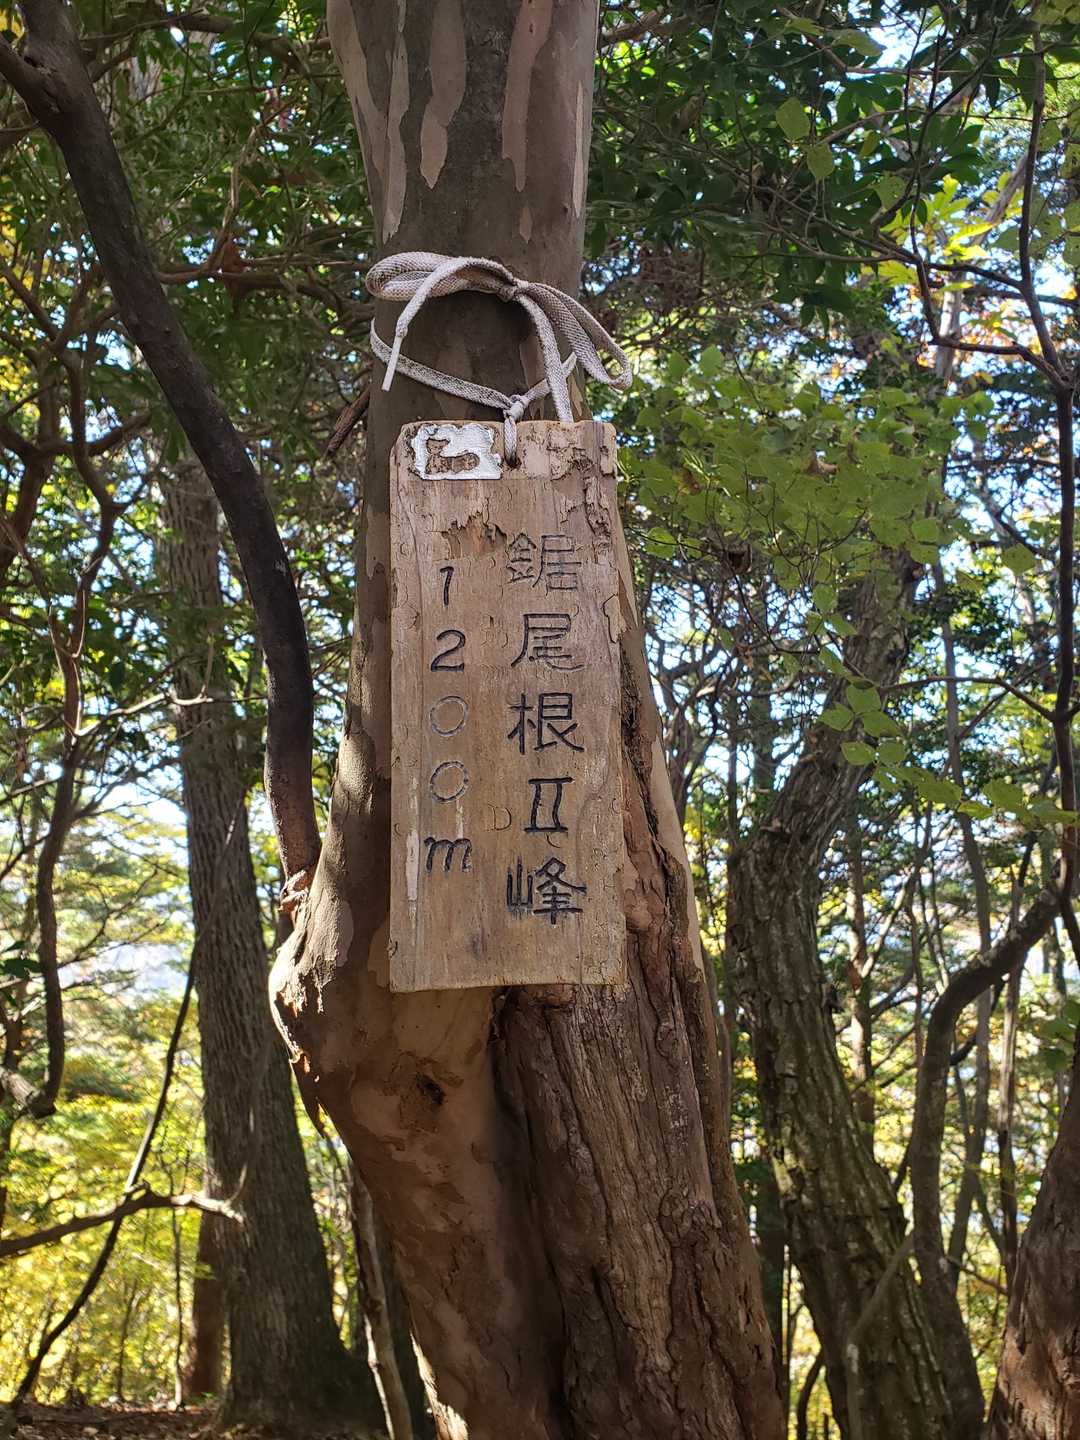 鋸尾根Ⅱ峰
1200m